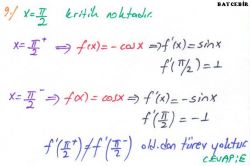 BAYCEBİR
9-/ x = π/2 kritik noktadır.
x = π/2⁺ ⟹ f(x) = -cosx ⟹ f'(x) = sinx
f'(π/2) = 1
x = π/2⁻ ⟹ f(x) = cosx ⟹ f'(x) = -sinx
f'(π/2) = -1
f'(π/2⁺) ≠ f'(π/2⁻) old.dan türev yoktur.
CEVAP: E